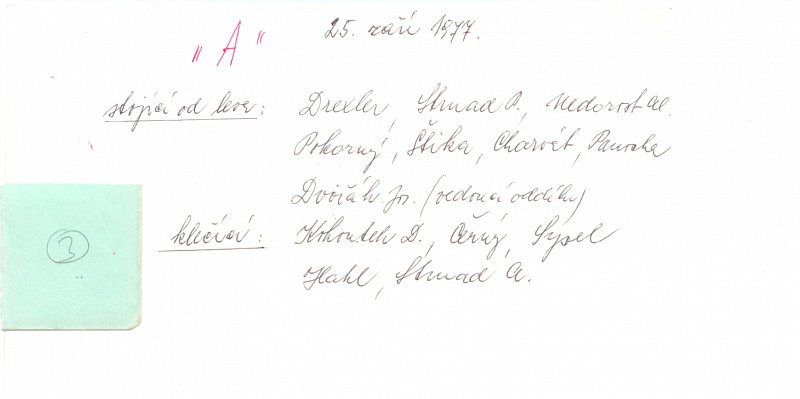 „A“
25. září 1977.
stojící od leva: Drexler, Strnad P., Nedorost
Pokorný, Štika, Charvát, Panocha
Dvořák Jos. (vedoucí oddílu)
klečící: Kohoutek D., Černý, Sysel
Hahl, Strnad A.
3